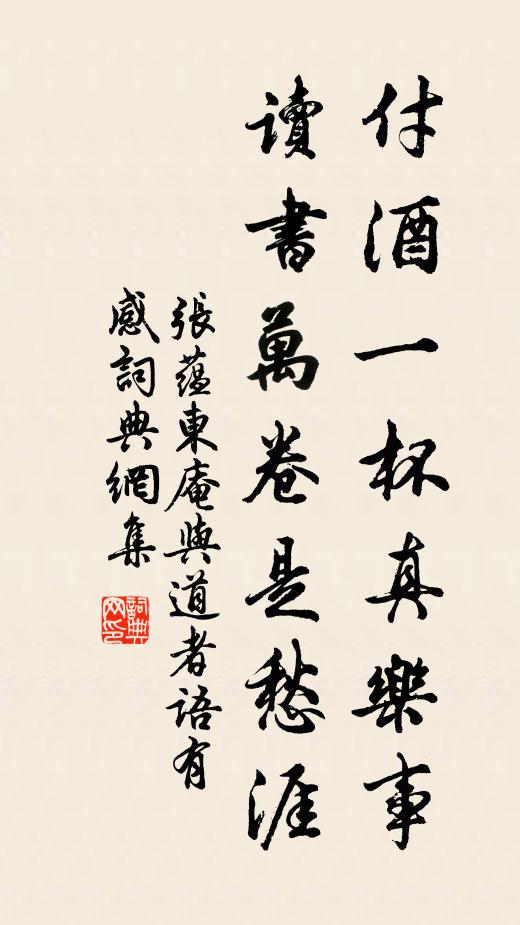 付酒一杯真樂事
讀書萬卷是愁涯
張蘊東庵與道者語有
感詞典網集
詞典
网印